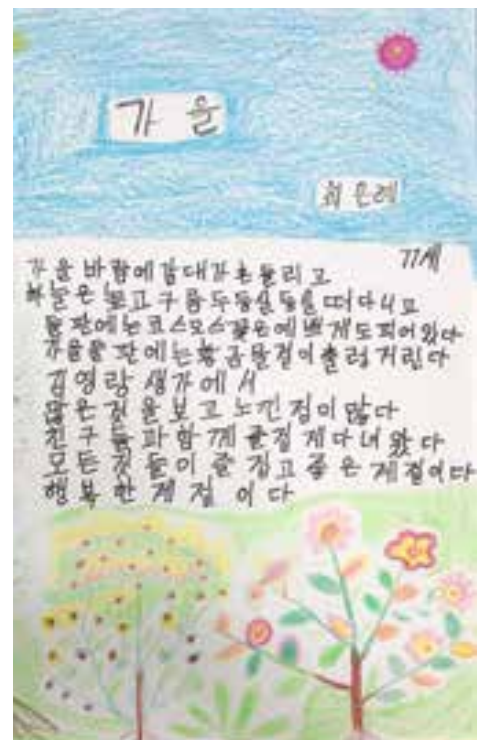 가을
최은례
77세
가을 바람에 갈대가 흔들리고
하늘은 높고 구름두둥실 둥실 떠다니고
들판에는 코스모스꽃은 예쁘게도 피어있다
가을 들판에는 황금물결이 출렁거린다
김영랑 생가에서
많은 것을 보고 느낀 점이 많다
친구들과 함께 즐겁게 다녀왔다
모든 것들이 즐겁고 좋은 계절이다
행복한 계절이다